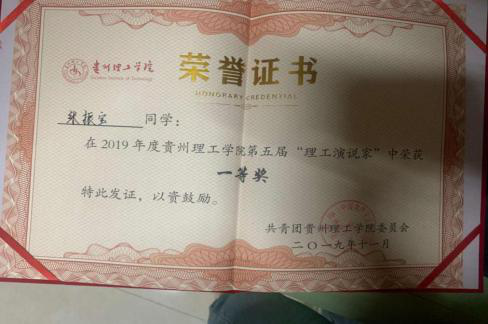 贵州理工学院
Guizhou Institute of Technology
荣誉证书
HONORARY CREDENTIAL
张振宝 同学：
在2019年度贵州理工学院第五届“理工演说家”中荣获
一等奖
特此发证，以资鼓励。
共青团贵州理工学院委员会
二〇一九年十一月